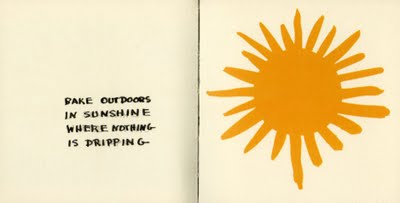 BAKE OUTDOORS
IN SUNSHINE
WHERE NOTHING
IS DRIPPING